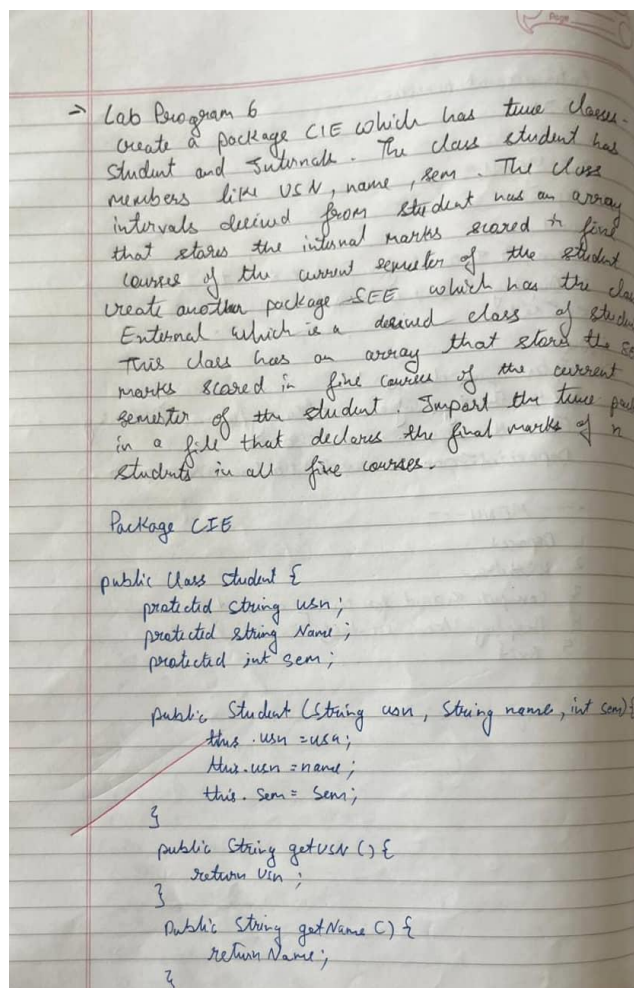 Page
→ Lab Program 6
create a package CIE which has two classes-
Student and Internals. The class student has
members like USN, name, sem. The class
intervals derived from student has an array
that stores the internal marks scored in five
courses of the current semester of the student
create another package SEE which has the clas
External which is a derived class of stude
This class has an array that stores the
marks scored in five courses of the current
semester of the student. Import the two pac
in a file that declares the final marks of n
students in all five courses.
Package CIE
public class Student {
protected String usn;
protected String Name;
protected int sem;
public Student (String usn, String name, int sem) {
this.usn = usn;
this.usn = name;
this.sem = sem;
}
public String getUSN () {
return usn;
}
public String getName () {
return Name;
}